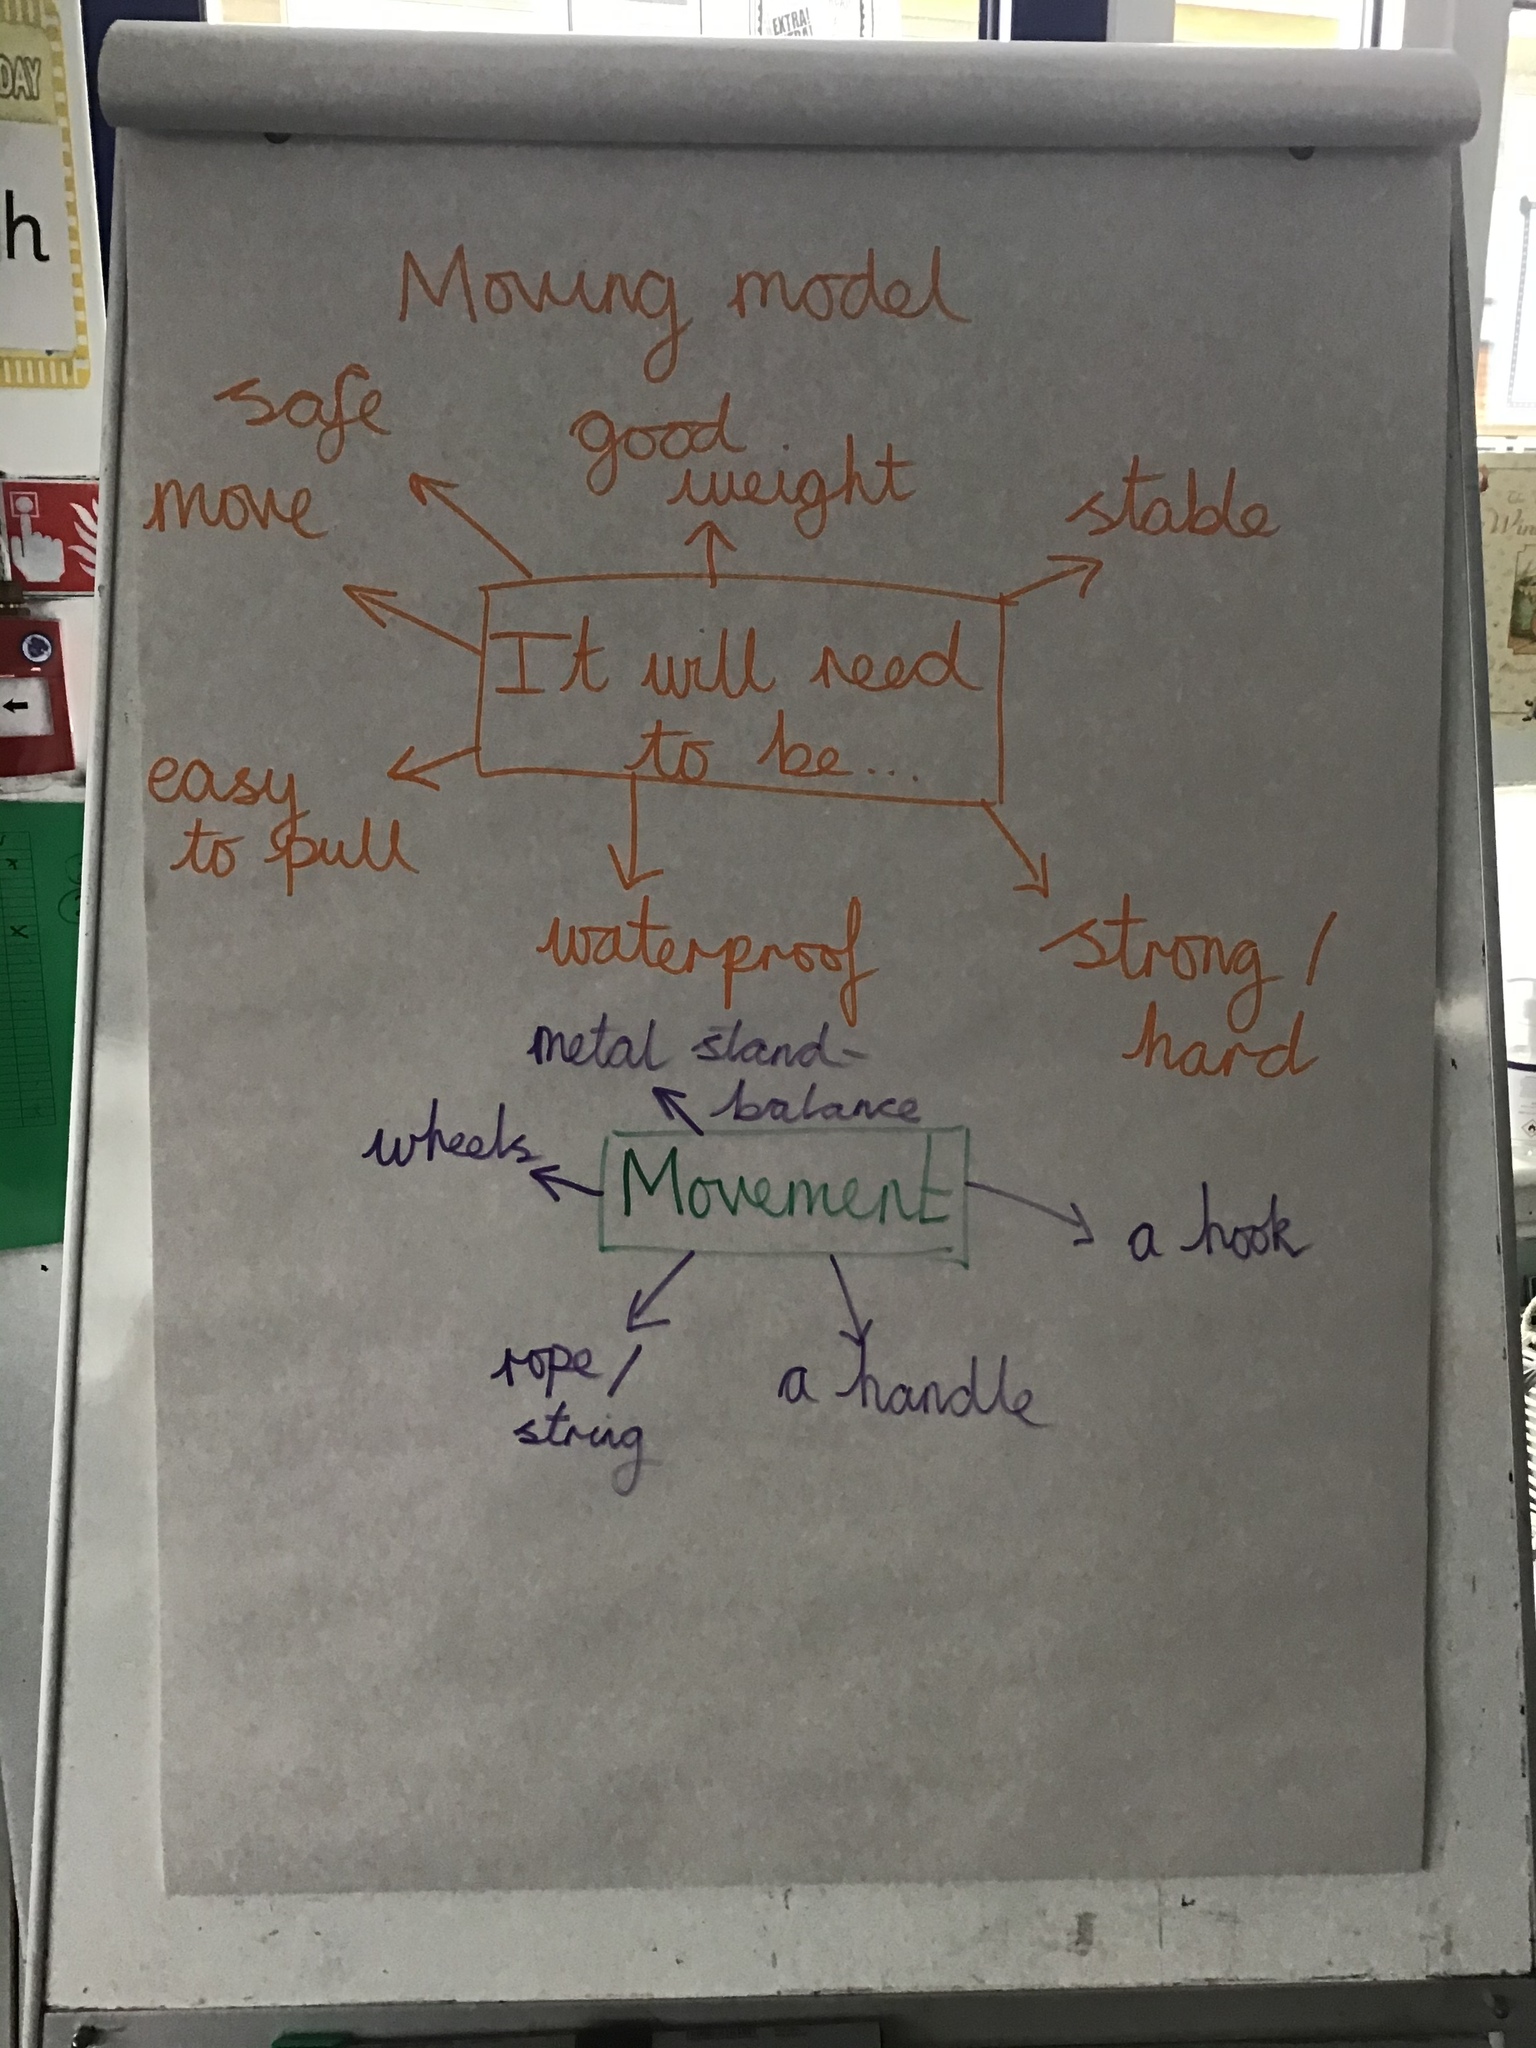 EXTRA!
DAY
h
Moving model
safe
good
weight
move
stable
It will need
to be...
easy
to pull
waterproof
strong /
hard
metal stand -
balance
wheels
Movement
a hook
rope /
string
a handle